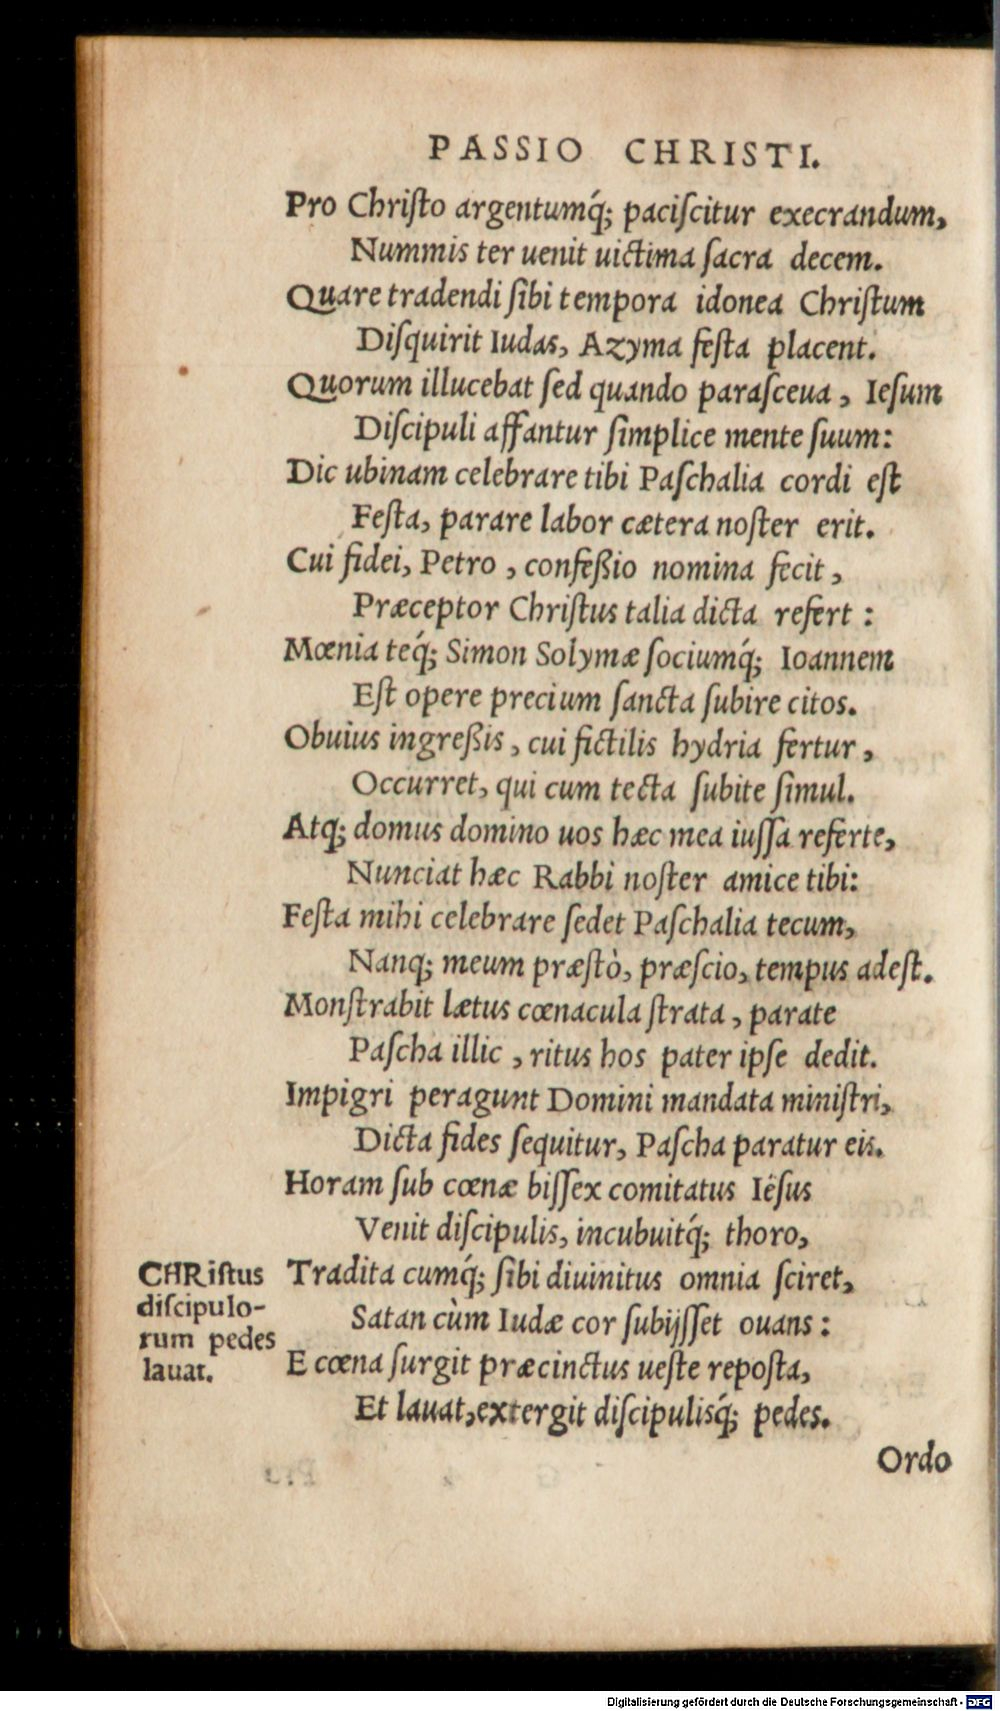 PASSIO CHRISTI.
Pro Chriſto argentumq́; paciſcitur execrandum,
Nummis ter uenit uictima ſacra decem.
Quare tradendi ſibi tempora idonea Chriſtum
Diſquirit Iudas, Azyma feſta placent.
Quorum illucebat ſed quando paraſceua, Ieſum
Diſcipuli affantur ſimplice mente ſuum:
Dic ubinam celebrare tibi Paſchalia cordi eſt
Feſta, parare labor cætera noſter erit.
Cui fidei, Petro, confeßio nomina fecit,
Præceptor Chriſtus talia dicta refert:
Mœnia teq́; Simon Solymæ ſociumq́; Ioannem
Eſt opere precium ſancta ſubire citos.
Obuius ingreßis, cui fictilis hydria fertur,
Occurret, qui cum tecta ſubite ſimul.
Atq; domus domino uos hæc mea iuſſa referte,
Nunciat hæc Rabbi noſter amice tibi:
Feſta mihi celebrare ſedet Paſchalia tecum,
Nanq; meum præſtò, præſcio, tempus adeſt.
Monſtrabit lætus cœnacula ſtrata, parate
Paſcha illic, ritus hos pater ipſe dedit.
Impigri peragunt Domini mandata miniſtri,
Dicta fides ſequitur, Paſcha paratur eis.
Horam ſub cœnæ biſſex comitatus Iëſus
Venit diſcipulis, incubuitq́; thoro,
Tradita cumq́; ſibi diuinitus omnia ſciret,
Satan cùm Iudæ cor ſubijſſet ouans:
E cœna ſurgit præcinctus ueſte repoſta,
Et lauat, extergit diſcipulisq́; pedes.
CHRiſtus
diſcipulo-
rum pedes
lauat.
Ordo
Digitalisierung gefördert durch die Deutsche Forschungsgemeinschaft - DFG